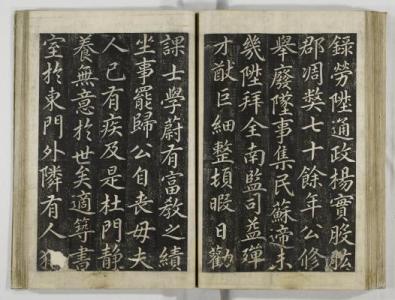 錄勞陞通政揚實股肱
郡凋獘七十餘年公修
舉廢墜事集民蘇諦未
幾陞拜全南監司益殫
才猷巨細整頓暇日勸
課士學蔚有富教之績
坐事罷歸公自喪毋夫
人已有疾及是杜門静
養無意於世矣適築書
室於東門外隣有人